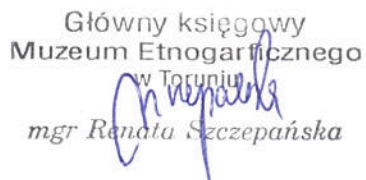 Główny księgowy
Muzeum Etnogarficznego
w Toruniu
mgr Renata Szczepańska